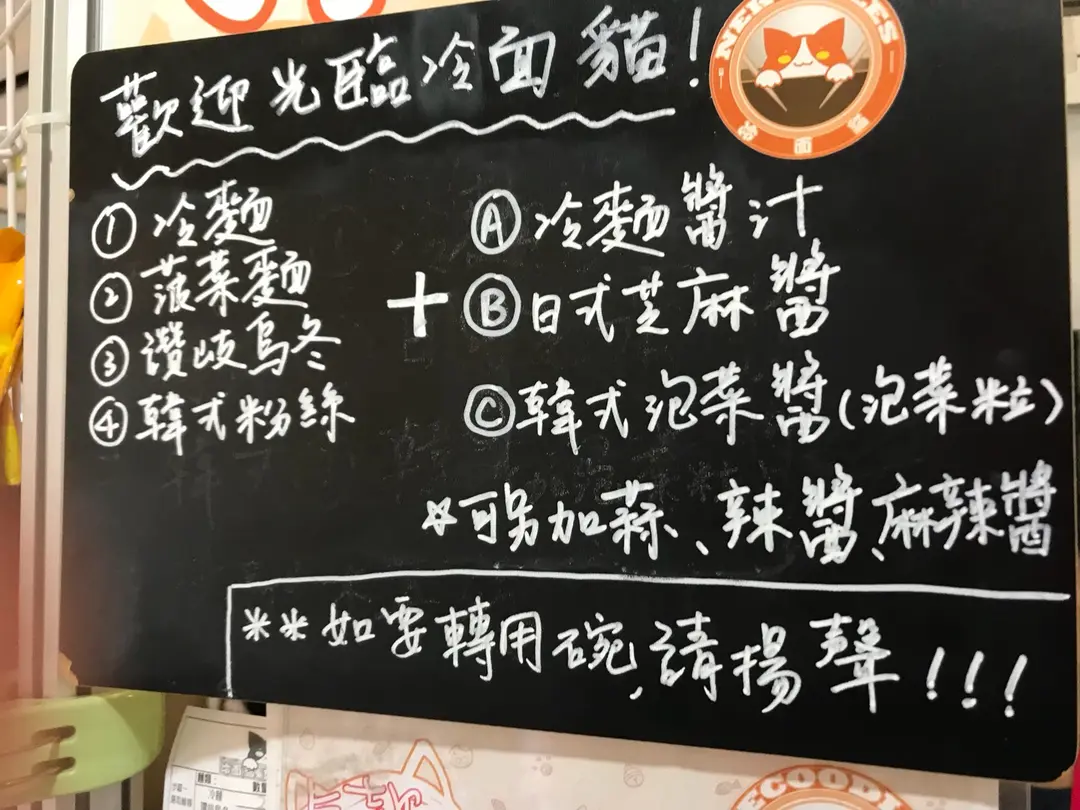 歡迎光臨冷面貓！
冷面貓
① 冷麵
② 菠菜麵
③ 讚岐烏冬
④ 韓式粉絲
+
Ⓐ 冷麵醬汁
Ⓑ 日式芝麻醬
Ⓒ 韓式泡菜醬(泡菜粒)
☆可另加蒜、辣醬、麻辣醬
**如要轉用碗,請揚聲!!!
種類：
冷麵